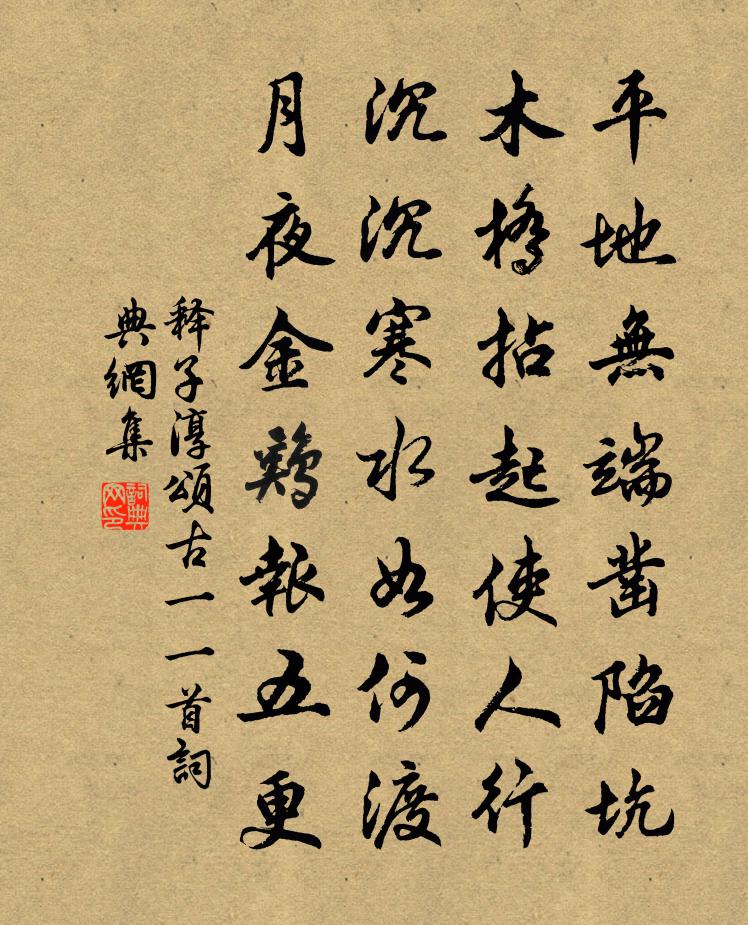 平地無端凿陷坑
木橋拈起使人行
沉沉寒水如何渡
月夜金鷄報五更
释子淳頌古一一首詞
典網集
詞典
网印